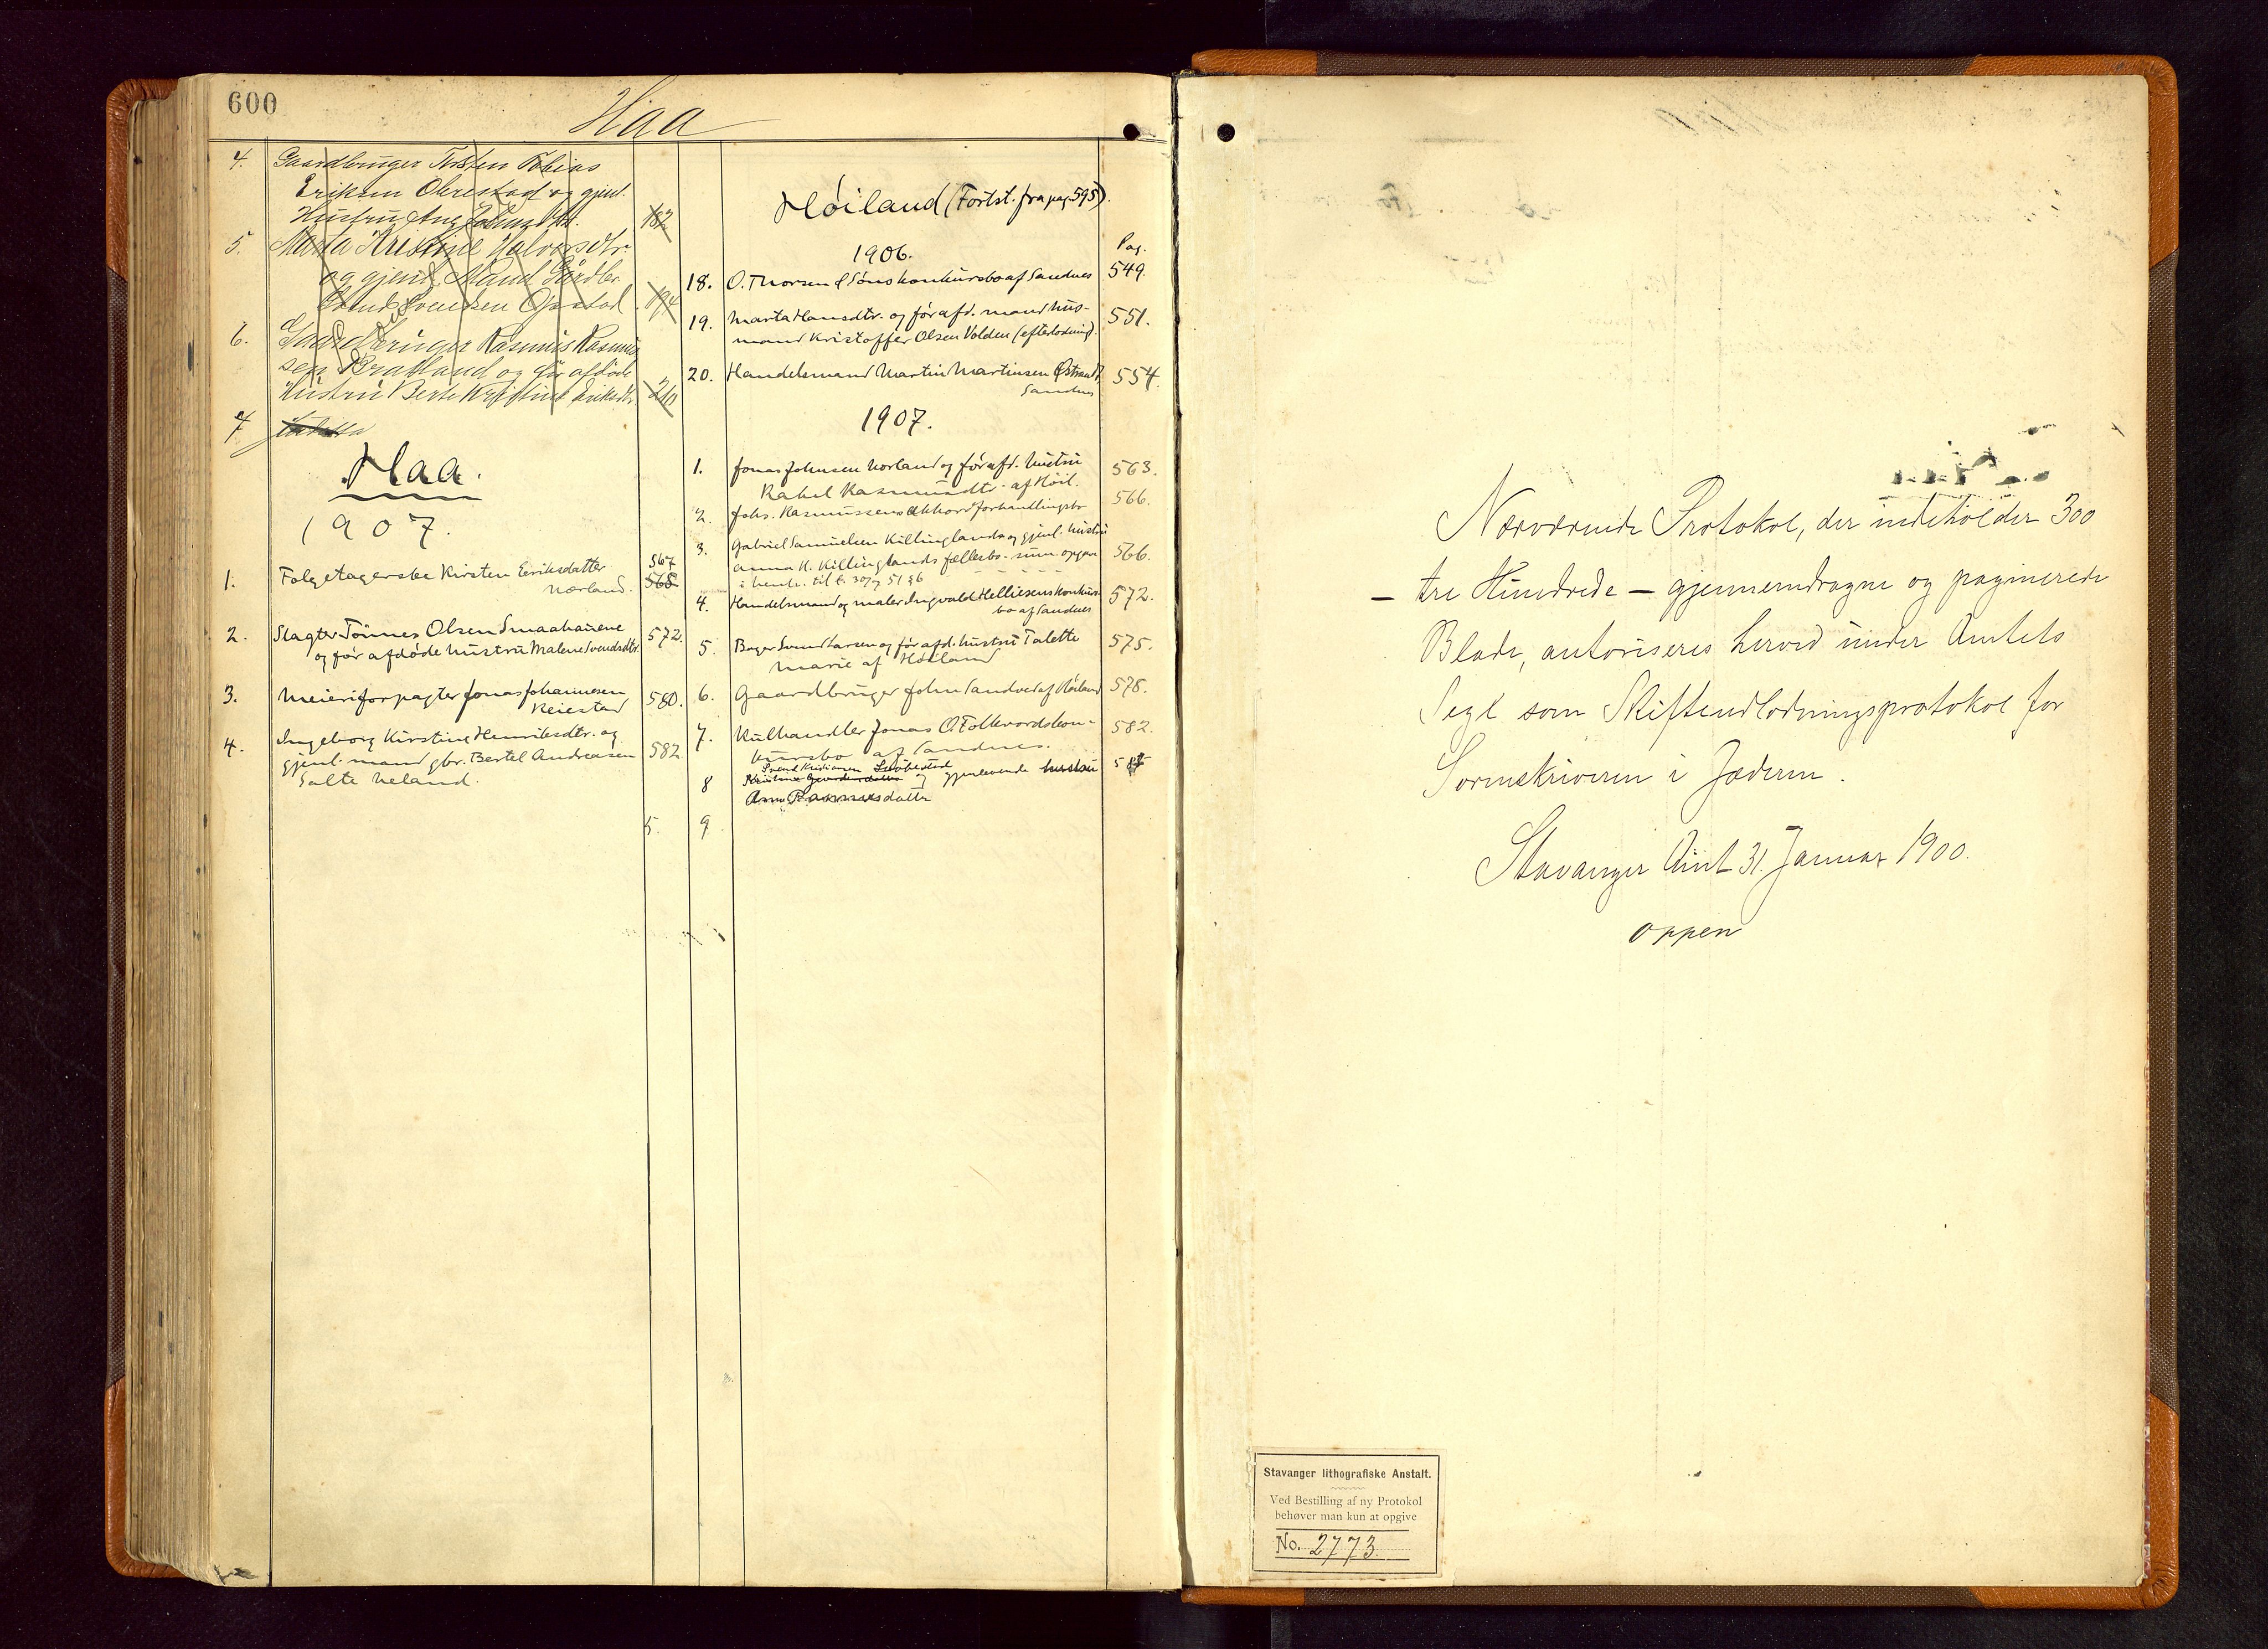 600
Haa
4. Gaardbruger Torsten Tobias
Eriksen Obrestad og gjenl.
Hustru Ane 182
5. Marta Kristine Halvorsdtr
og gjenl. Mand Gårdbr.
Svendsen Opstad 194
6. Gaardbruger Rasmus Rasmus
sen Bratland og før afdøde
Hustru Berte Kristine Eriksdtr. 210
7
Haa.
1907.
1. Folgetagerske Kirsten Eeriksdatter 567
Nærland. 565
2. Slagter Tønnes Olsen Smaahauene 572.
og før afdøde hustru Malene Svendsdtr.
3. Meieriforpagter Jonas Johannesen 580.
Reiestad
4. Ingeborg Kirstine Henriksdtr. og
gjenl. mand gbr. Bertel Andreasen 582
Salte Neland.
5.
Høiland (Fortst. fra pag 595).
1906. Pag.
18. O. Thorsen & Søns konkursbo af Sandnes 549.
19. Marta Hansdtr. og før afd. mand hus- 551.
mand Kristoffer Olsen Volden (efterlodning).
20. Handelsmand Martin Martinsen Østrandt, 554.
Sandnes
1907.
1. Jonas Johnsen Norland og før afd. hustru 563.
Rakel Rasmusdtr. af Høil.
2. Johs. Rasmussens Akkordforhandlingsbo 566.
3. Gabriel Samuelsen Killinglands og gjenl. hustru
Anna K. Killinglands fællesbo - sum. opgjør 566.
i henh. til L. 30/7 51 § 6
4. Handelsmand og maler Ingvald Helliesens konkurs- 572.
bo af Sandnes
5. Bager Svend Larsen og før afd. hustru Talette 575.
Marie af Høiland
6. Gaardbruger John Sandved af Høiland 578.
7. Kulhandler Jonas O. Folkvordskon- 582.
kursbo af Sandnes.
Svend Kristiansen
8 og gjenlevende hustru
Anna Rasmusdatter
9
Nærværende Protokol, der indeholder 300
– tre Hundrede – gjennemdragne og paginerede
Blade, autoriseres herved under Amtets
Segl som Skifteudlodningsprotokol for
Sorenskriveren i Jæderen.
Stavanger Amt 31. Januar 1900.
Oppen
Stavanger lithografiske Anstalt.
Ved Bestilling af ny Protokol
behøver man kun at opgive
No. 2773.